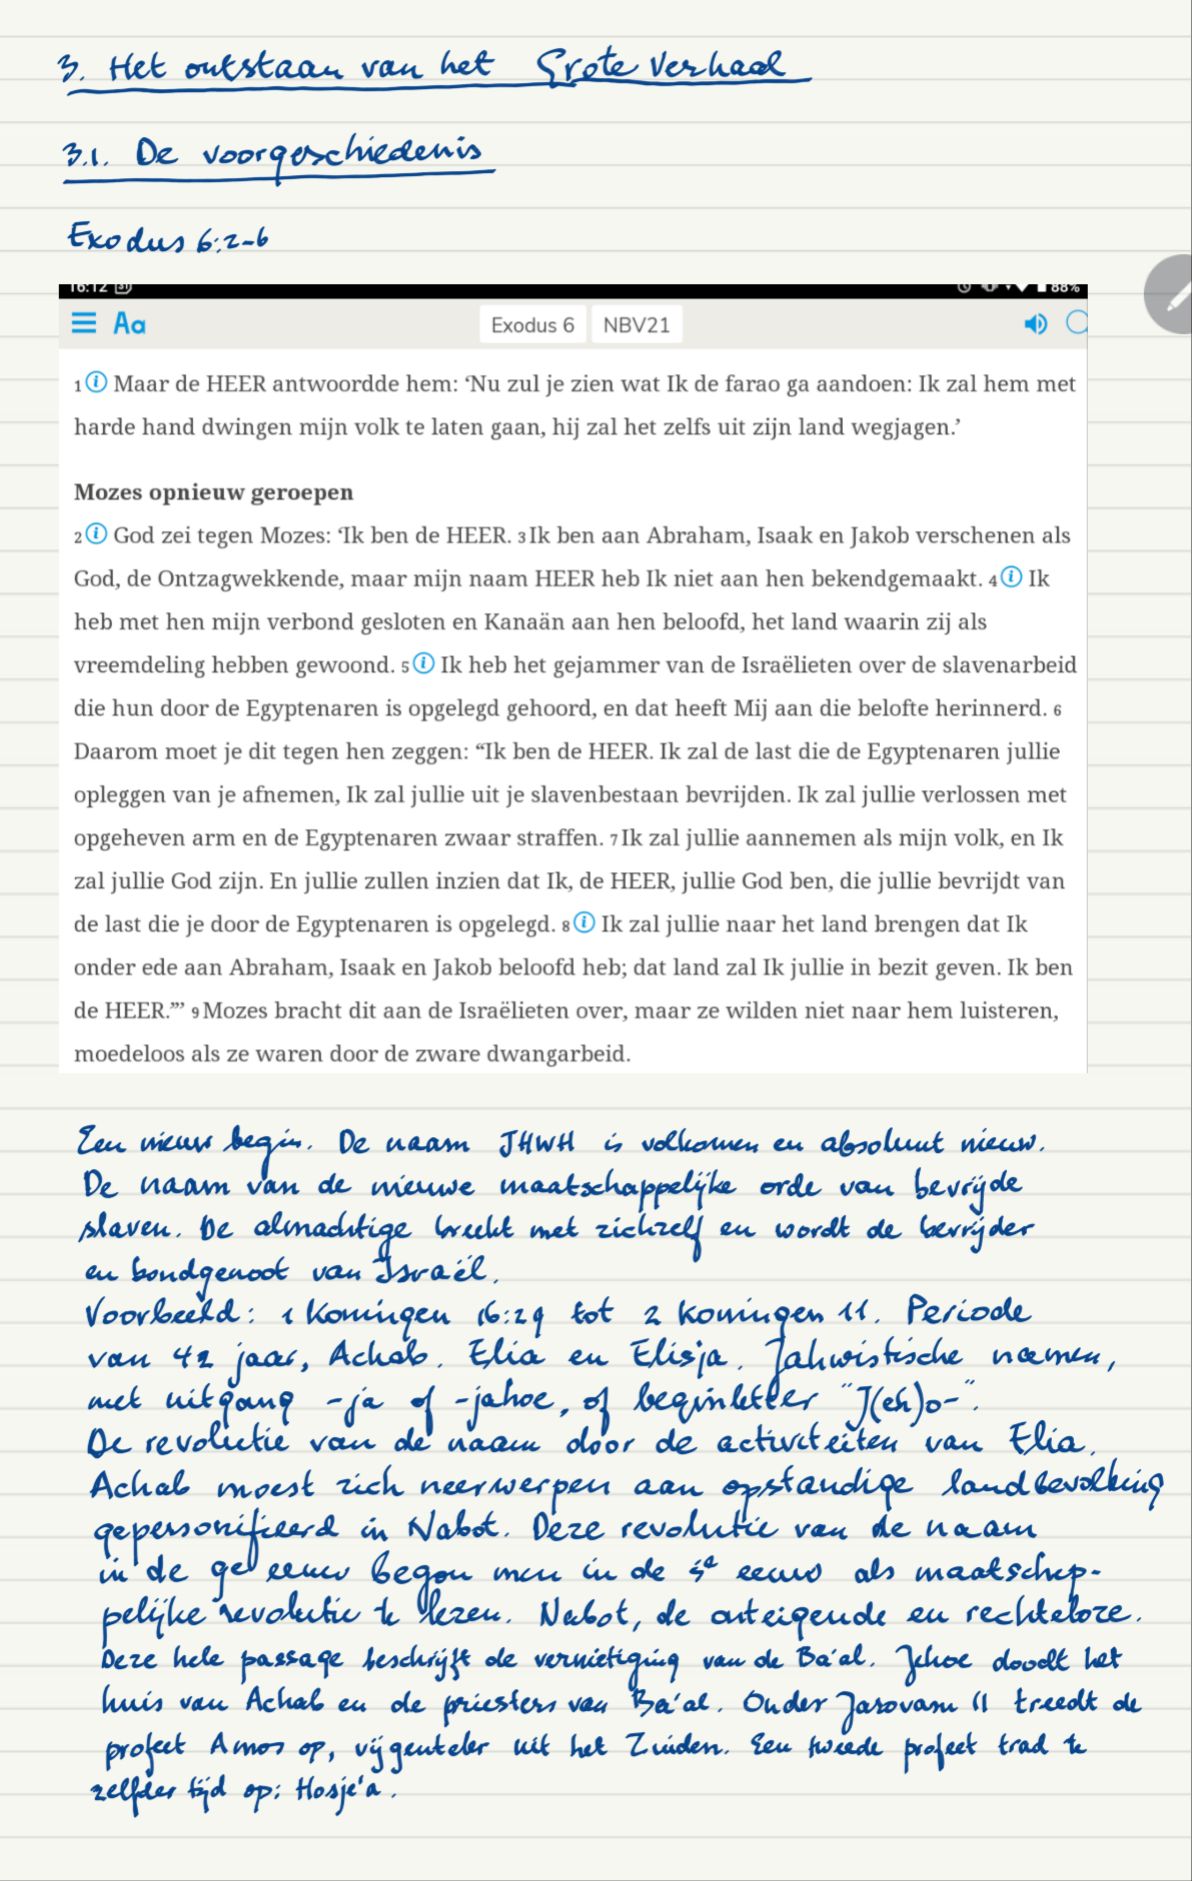 3. Het ontstaan van het Grote Verhaal
3.1. De voorgeschiedenis
Exodus 6:2-6
16:12 31 88%
Aa Exodus 6 NBV21
1 Maar de HEER antwoordde hem: ‘Nu zul je zien wat Ik de farao ga aandoen: Ik zal hem met
harde hand dwingen mijn volk te laten gaan, hij zal het zelfs uit zijn land wegjagen.’
Mozes opnieuw geroepen
2 God zei tegen Mozes: ‘Ik ben de HEER. 3 Ik ben aan Abraham, Isaak en Jakob verschenen als
God, de Ontzagwekkende, maar mijn naam HEER heb Ik niet aan hen bekendgemaakt. 4 Ik
heb met hen mijn verbond gesloten en Kanaän aan hen beloofd, het land waarin zij als
vreemdeling hebben gewoond. 5 Ik heb het gejammer van de Israëlieten over de slavenarbeid
die hun door de Egyptenaren is opgelegd gehoord, en dat heeft Mij aan die belofte herinnerd. 6
Daarom moet je dit tegen hen zeggen: “Ik ben de HEER. Ik zal de last die de Egyptenaren jullie
opleggen van je afnemen, Ik zal jullie uit je slavenbestaan bevrijden. Ik zal jullie verlossen met
opgeheven arm en de Egyptenaren zwaar straffen. 7 Ik zal jullie aannemen als mijn volk, en Ik
zal jullie God zijn. En jullie zullen inzien dat Ik, de HEER, jullie God ben, die jullie bevrijdt van
de last die je door de Egyptenaren is opgelegd. 8 Ik zal jullie naar het land brengen dat Ik
onder ede aan Abraham, Isaak en Jakob beloofd heb; dat land zal Ik jullie in bezit geven. Ik ben
de HEER.”’ 9 Mozes bracht dit aan de Israëlieten over, maar ze wilden niet naar hem luisteren,
moedeloos als ze waren door de zware dwangarbeid.
Een nieuw begin. De naam JHWH is volkomen en absoluut nieuw.
De naam van de nieuwe maatschappelijke orde van bevrijde
slaven. De almachtige breekt met zichzelf en wordt de bevrijder
en bondgenoot van Israël.
Voorbeeld: 1 Koningen 16:29 tot 2 koningen 11. Periode
van 42 jaar, Achab. Elia en Elisja. Jahwistische namen,
met uitgang -ja of -jahoe, of beginletter "J(eh)o-".
De revolutie van de naam door de activiteiten van Elia.
Achab moest zich neerwerpen aan opstandige landbevolking
gepersonifieerd in Nabot. Deze revolutie van de naam
in de 9e eeuw begon men in de 5e eeuw als maatschap-
pelijke revolutie te lezen. Nabot, de onteigende en rechteloze.
Deze hele passage beschrijft de vernietiging van de Ba'al. Jehoe doodt het
huis van Achab en de priesters van Ba'al. Onder Jarovam II treedt de
profeet Amos op, vijgenteler uit het Zuiden. Een tweede profeet trad te
zelfder tijd op: Hosje'a.